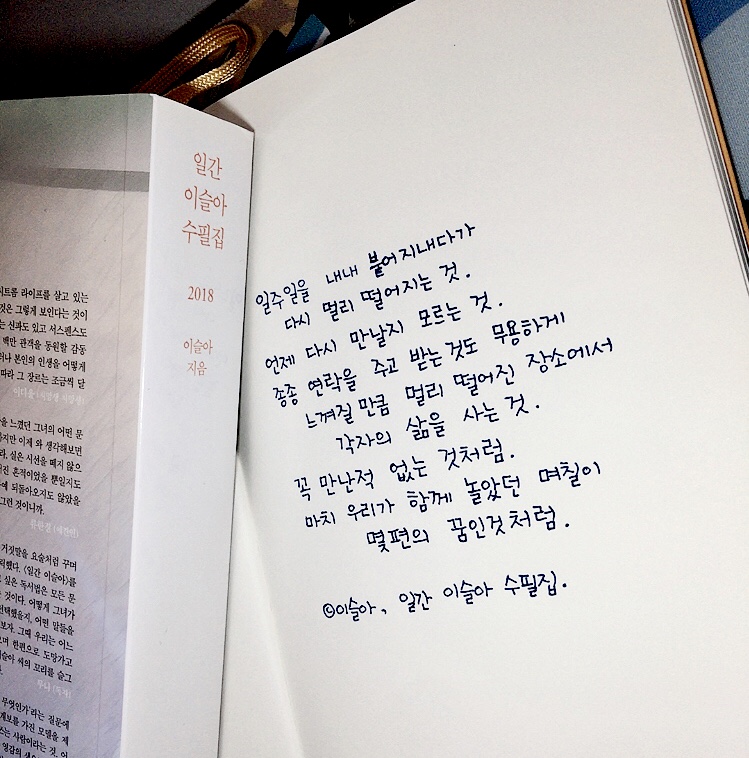 일간
이슬아
수필집
2018
이슬아
지음
일주일을 내내 붙어지내다가
다시 멀리 떨어지는 것.
언제 다시 만날지 모르는 것.
종종 연락을 주고 받는것도 무용하게
느껴질만큼 멀리 떨어진 장소에서
각자의 삶을 사는것.
꼭 만난적 없는 것처럼.
마치 우리가 함께 놀았던 며칠이
몇편의 꿈인것처럼.
©이슬아, 일간 이슬아 수필집.
라이프를 살고 있는
것은 그렇게 보인다는 것이
는 신파도 있고 서스펜스도
백만 관객을 동원할 감동
러나 본인의 인생을 어떻게
따라 그 장르는 조금씩 달
을 느꼈던 그녀의 어떤 문
지만 이제 와 생각해보면
라, 실은 시선을 떼지 않으
진 흔적이었을 뿐일지도
에 되돌아오지도 않았을
그런 것이니까.
거짓말을 요술처럼 꾸며
했다. 〈일간 이슬아〉를
싶은 독서법은 모든 문
것이다. 어떻게 그녀가
선택했을지, 어떤 말들을
보자. 그때 우리는 어느
며 한편으로 도망가고
슬아 씨의 꼬리를 슬그
무엇인가'라는 질문에
계보를 가진 모델을 제
스는 사람이라는 것, 어